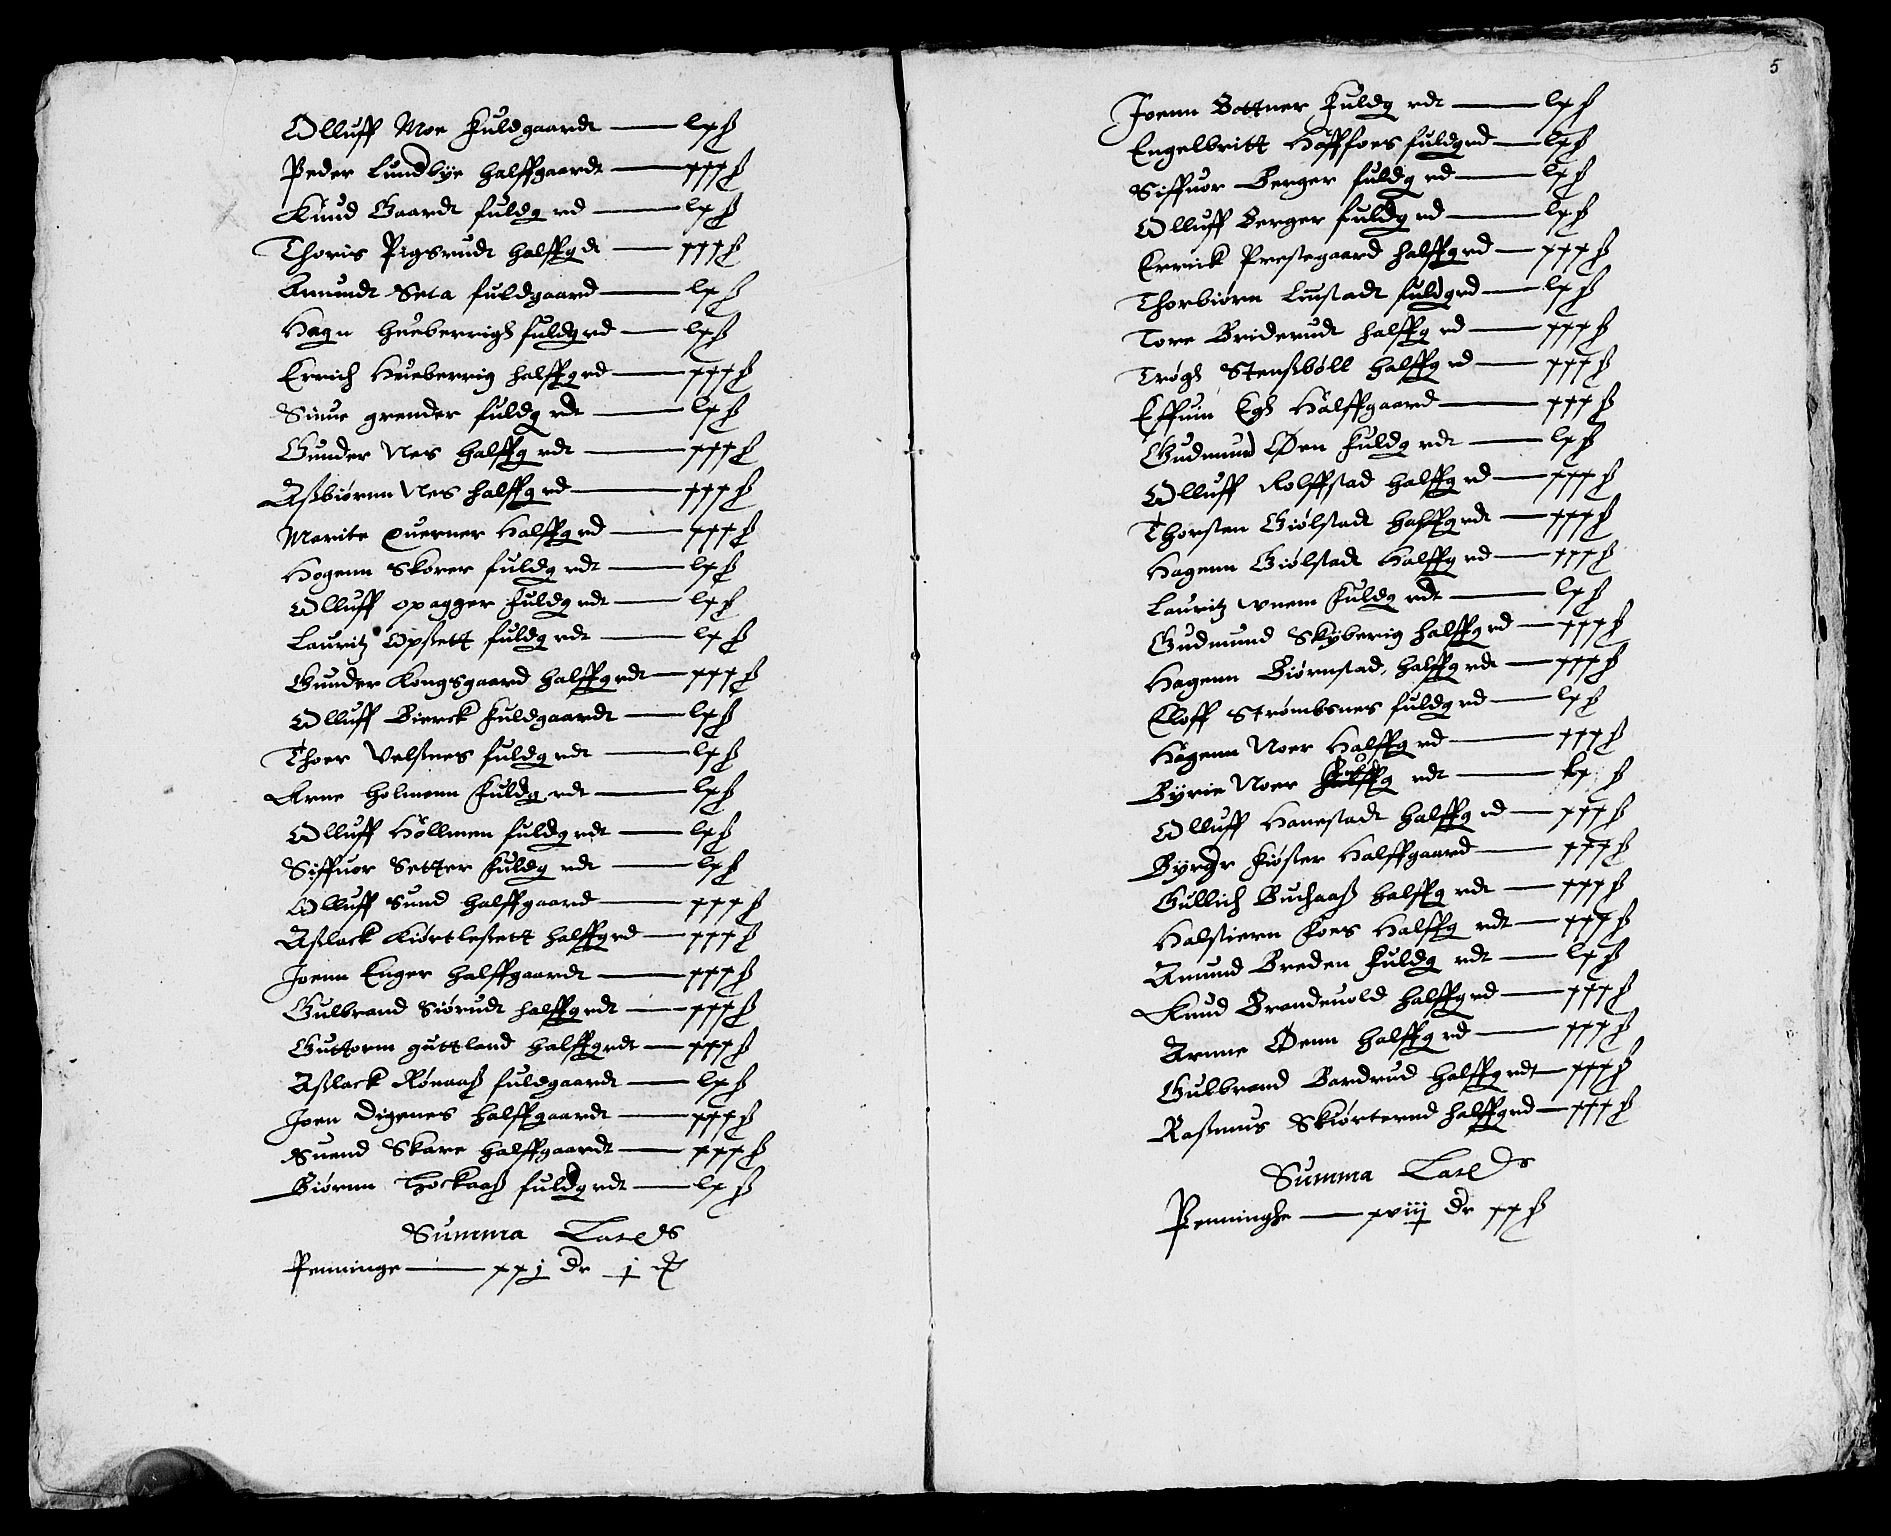 Olluff Moe fuldgaardt — lx ß
Peder Lundbÿe halffgaardt — xxx ß
Knud Gaardt fuldg rd — lx ß
Thoris Pigsrudt halffg dt — xxx ß
Amundt Seta fuldgaard — lx ß
Hagn hueberrigh fuldgrd — lx ß
Errich Hueberrig halffgrd — xxx ß
Siuue grender fuldg rdt — lx ß
Gunder Nes halffg rdt — xxx ß
Aßbiørnn Nes halffg rd — xxx ß
Marite Querner Halffgrd — xxx ß
Hogenn Skorer fuldg rdt — lx ß
Olluff opagger fuldg rdt — lx ß
Lauritz Opsett fuldg rdt — lx ß
Gunder Kongsgaard halffgrdt — xxx ß
Olluff Bierck fuldgaardt — lx ß
Thoer Velsnes fuldg rdt — lx ß
Arne holmenn fuldg rdt — lx ß
Olluff Hollmen fuldg rdt — lx ß
Siffuor Setter fuldg rdt — lx ß
Olluff Sund halffgaard — xxx ß
Aßlack Kiørtlesett halffgrd — xxx ß
Joenn Enger halffgaardt — xxx ß
Gulbrand Siørudt halffgrdt — xxx ß
Guttorm guttland halffgrdt — xxx ß
Aßlack Rønaaß fuldgaardt — lx ß
Joen Digenes halffgaardt — xxx ß
Suend Skare halffgaardt — xxx ß
Biørnn Hockaaß fuldgrdt — lx ß
Summa Lateris
Penninge — xxj dr j
5
Joenn Bottner fuldg rdt — lx ß
Engelbritt Hoffsoes fuldgrd — lx ß
Siffuor Berger fuldg rd — lx ß
Olluff Berger fuldg rd — lx ß
Errick Prestegaard halffgrd — xxx ß
Thorbiørn Liustadt fuldgrd — lx ß
Tore Briderudt halffg rd — xxx ß
Trøgh Stensbøll halffg rd — xxx ß
Effuin Egh Halffgaard — xxx ß
Gudmund Øen fuldg rdt — lx ß
Olluff Rolffstad halffg rd — xxx ß
Thorsten Giølstadt halffgrdt — xxx ß
Hagenn Giølstadt Halffg rd — xxx ß
Lauritz vnem fuldg rdt — lx ß
Gudmund Skÿberig halffgrd — xxx ß
Hagenn Biørnstad halffg rdt — xxx ß
Eloff Strømbsnes fuldgrd — lx ß
Hagenn Noer Halffg rd — xxx ß
Bÿrie Noer rdt — lx ß
Olluff Hanestadt halffg rd — xxx ß
Bÿrger Kiøster Halffgaard — xxx ß
Gullich Buchaaß halffg rdt — xxx ß
Halstienn foes Halffg rdt — xxx ß
Amund Breden fuldg rdt — lx ß
Knud Brandeuold halffgrd — xxx ß
Arnne Øenn halffg rd — xxx ß
Gulbrand Bardrud halffgrdt — xxx ß
Rasmus Skiørterud halffgrd — xxx ß
Summa Lateris
Penninghe — xviij dr xx ß